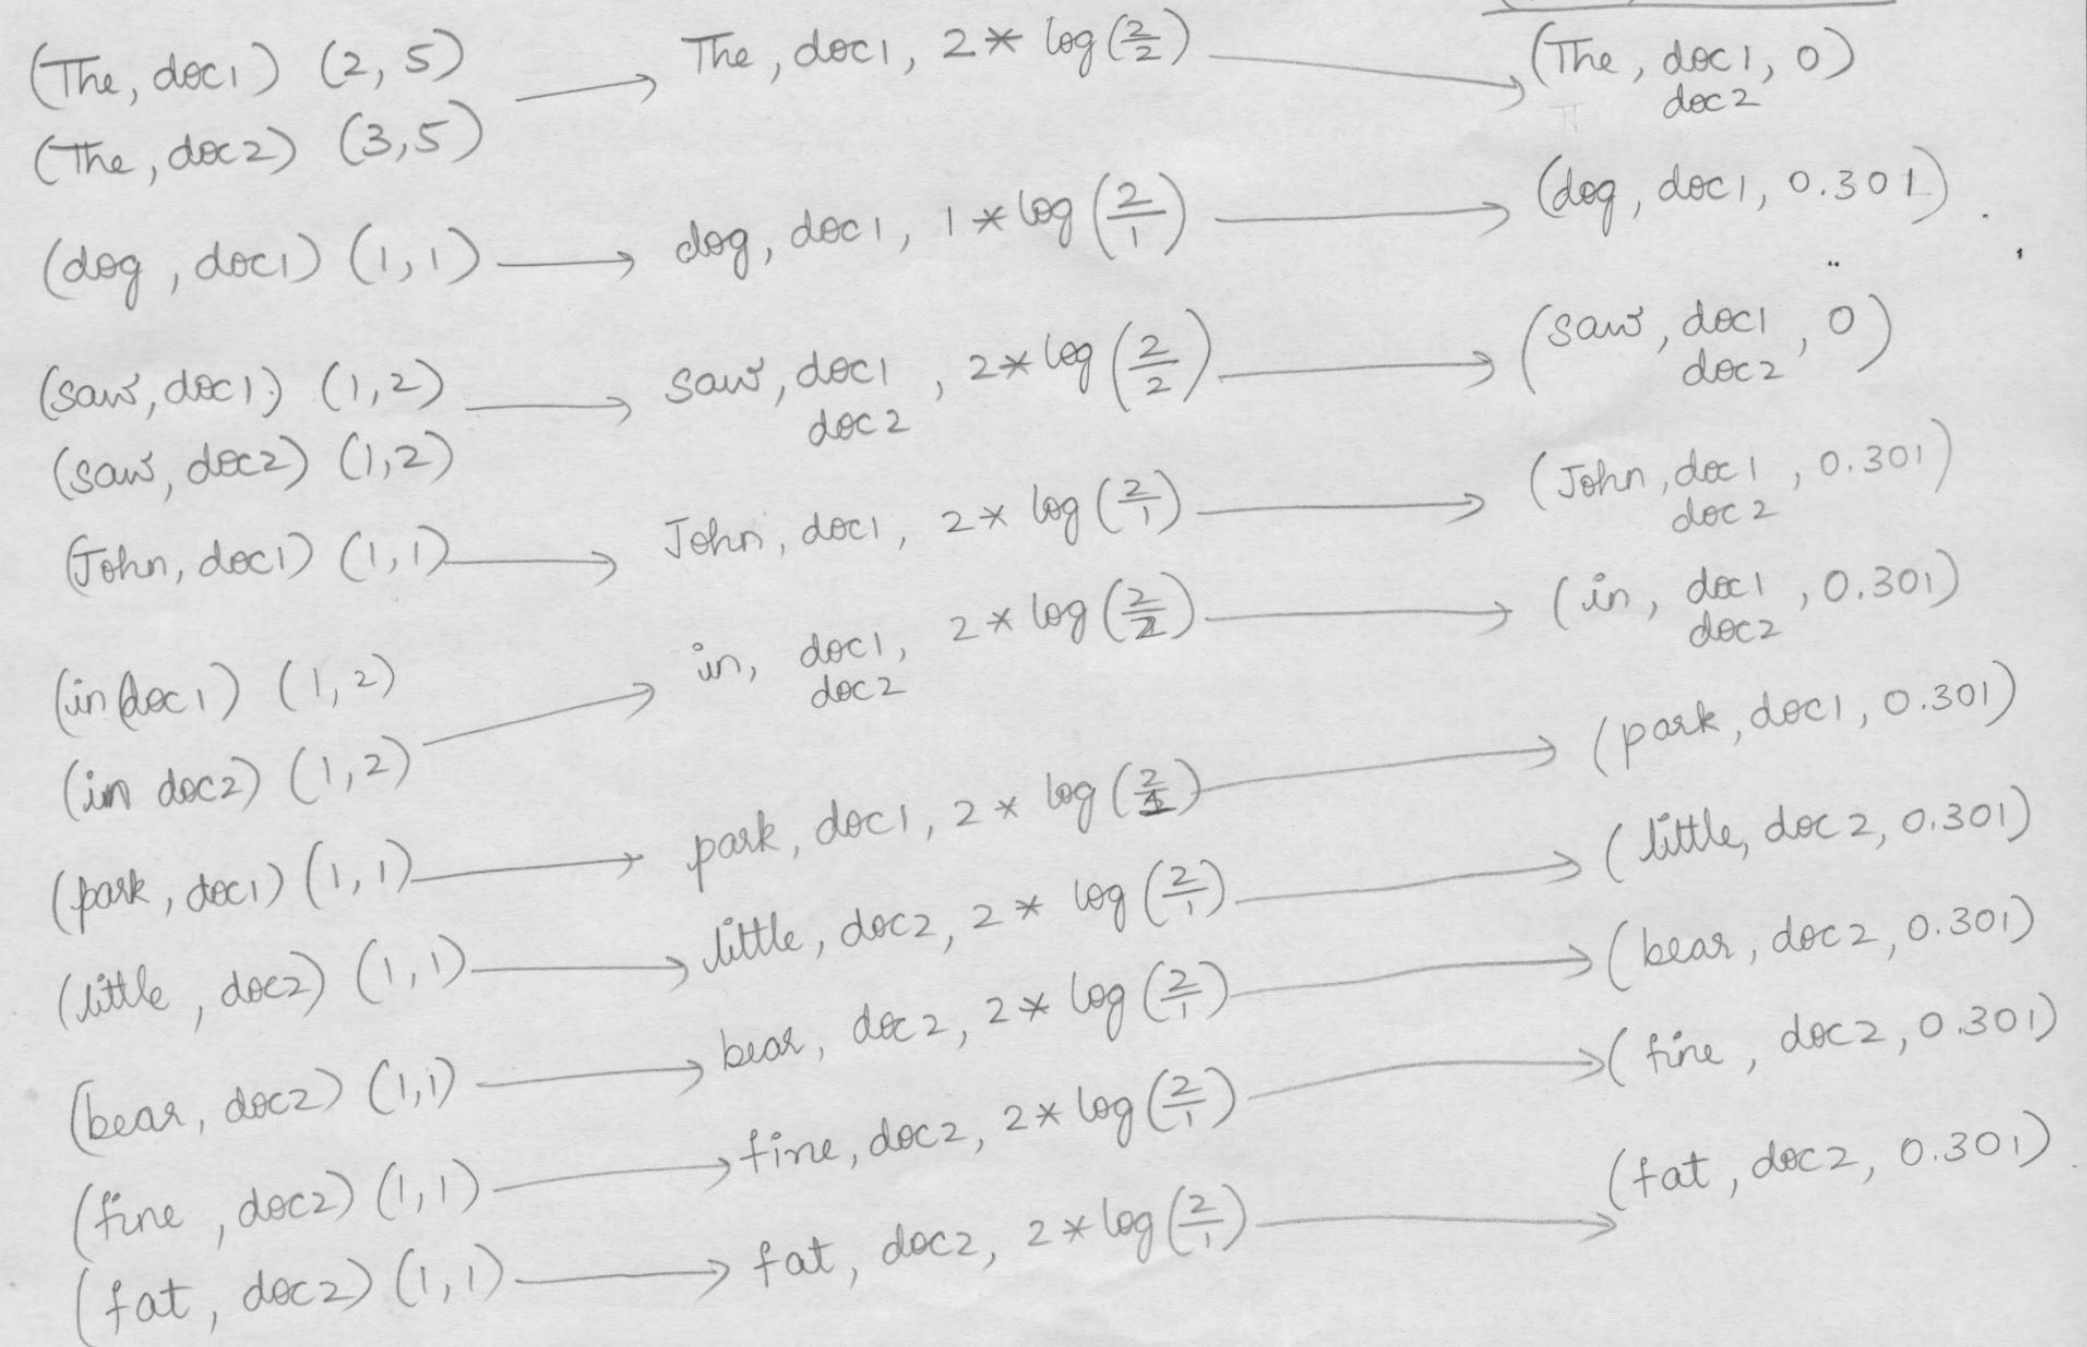 (The, doc1) (2, 5) → The, doc1, 2 * log(2/2) → (The, doc1, 0)
doc2
(The, doc2) (3,5)
(dog, doc1) (1,1) → dog, doc1, 1 * log(2/1) → (dog, doc1, 0.301)
(saw, doc1) (1,2) → saw, doc1, 2* log(2/2) → (saw, doc1, 0)
doc2 doc2
(saw, doc2) (1,2)
(John, doc1) (1,1) → John, doc1, 2* log(2/1) → (John, doc1, 0.301)
doc2
(in doc1) (1,2) → in, doc1, 2* log(2/2) → (in, doc1, 0.301)
doc2 doc2
(in doc2) (1,2)
(park, doc1) (1,1) → park, doc1, 2 * log(2/1) → (park, doc1, 0.301)
(little, doc2) (1,1) → little, doc2, 2 * log(2/1) → (little, doc2, 0.301)
(bear, doc2) (1,1) → bear, doc2, 2* log(2/1) → (bear, doc2, 0.301)
(fine, doc2) (1,1) → fine, doc2, 2* log(2/1) → (fine, doc2, 0.301)
(fat, doc2) (1,1) → fat, doc2, 2* log(2/1) → (fat, doc2, 0.301)